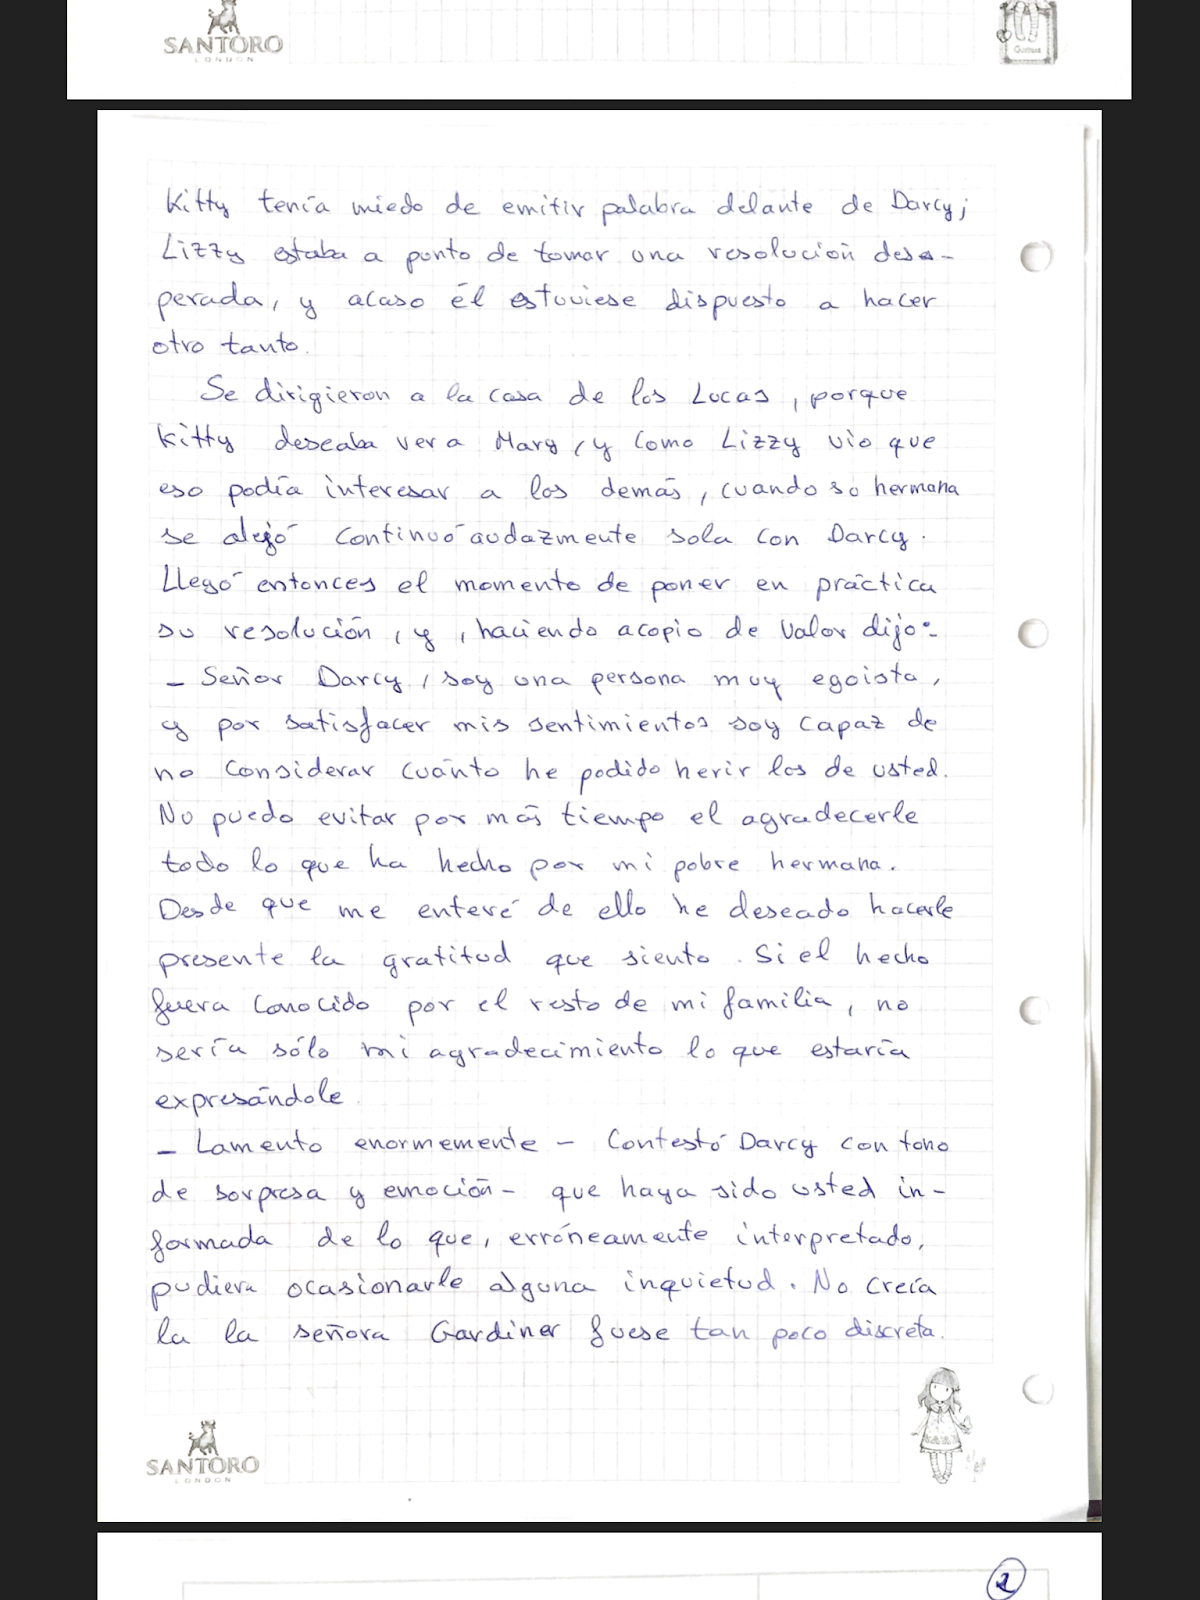 SANTORO
LONDON
Gorjuss
Kitty tenía miedo de emitir palabra delante de Darcy;
Lizzy estaba a punto de tomar una resolución deses-
perada, y acaso él estuviese dispuesto a hacer
otro tanto.
Se dirigieron a la casa de los Lucas, porque
Kitty deseaba ver a Mary, y como Lizzy vio que
eso podía interesar a los demás, cuando su hermana
se alejó continuó audazmente sola con Darcy.
Llegó entonces el momento de poner en práctica
su resolución, y, haciendo acopio de valor dijo:
- Señor Darcy, soy una persona muy egoista,
y por satisfacer mis sentimientos soy capaz de
no considerar cuánto he podido herir los de usted.
No puedo evitar por más tiempo el agradecerle
todo lo que ha hecho por mi pobre hermana.
Desde que me enteré de ello he deseado hacerle
presente la gratitud que siento. Si el hecho
fuera conocido por el resto de mi familia, no
sería sólo mi agradecimiento lo que estaría
expresándole.
- Lamento enormemente - Contestó Darcy con tono
de sorpresa y emoción - que haya sido usted in-
formada de lo que, erróneamente interpretado,
pudiera ocasionarle alguna inquietud. No creía
la la señora Gardiner fuese tan poco discreta.
SANTORO
LONDON
2